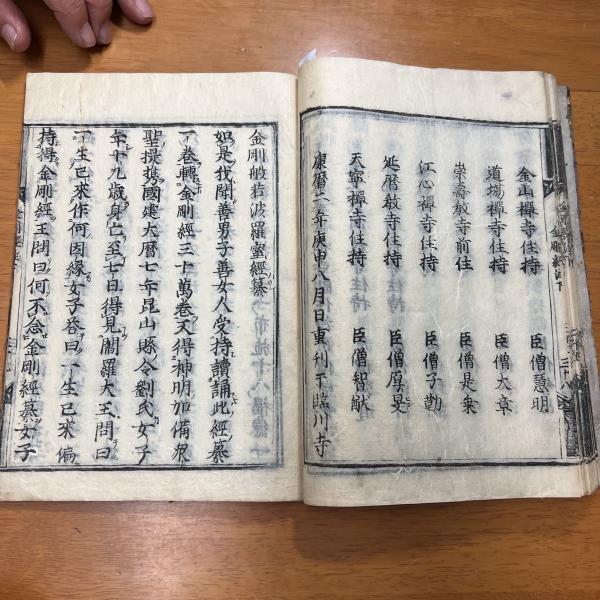 金山禪寺住持　臣僧慧明
道場禪寺住持　臣僧大章
崇壽教寺前住　臣僧是衆
江心禪寺住持　臣僧子勤
延暦教寺住持　臣僧厚旻
天寧禪寺住持　臣僧智猷
康暦二年庚申八月日重刋于臨川寺
金剛般若波羅蜜經纂
如是我聞善男子善女人受持讀誦此經纂
一卷轉金剛經三十萬卷又得神明加備衆
聖提携國建大暦七年毘山縣令劉氏女子
年十九歳身亡至七日得見閻羅大王問曰
一生已來作何因縁女子荅曰一生已來偏
持得金剛經王問曰何不念金剛經纂女子